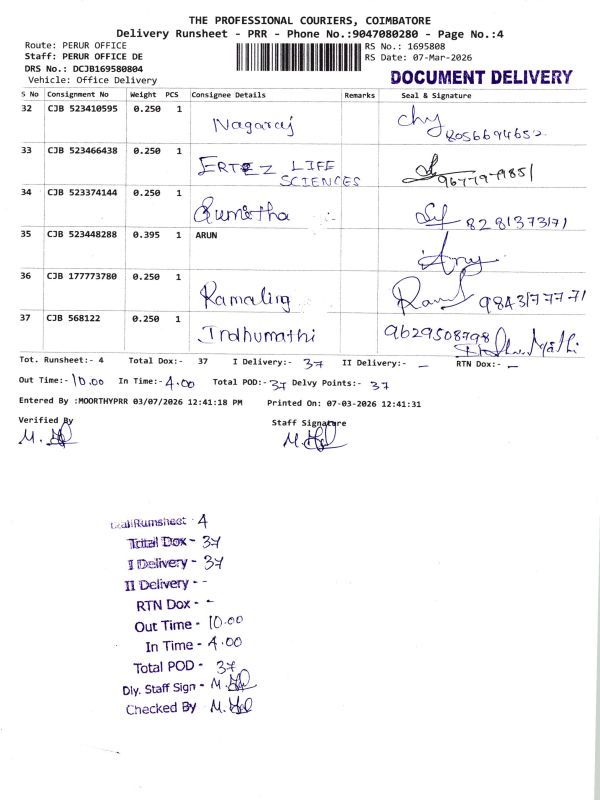 THE PROFESSIONAL COURIERS, COIMBATORE
Delivery Runsheet - PRR - Phone No.:9047080280 - Page No.:4
Route: PERUR OFFICE RS No.: 1695808
Staff: PERUR OFFICE DE RS Date: 07-Mar-2026
DRS No.: DCJB169580804
Vehicle: Office Delivery DOCUMENT DELIVERY
S No Consignment No Weight PCS Consignee Details Remarks Seal & Signature
32 CJB 523410595 0.250 1 Nagaraj 8056694652
33 CJB 523466438 0.250 1 ERTEZ LIFE SCIENCES
34 CJB 523374144 0.250 1 Sumitha 8281373171
35 CJB 523448288 0.395 1 ARUN
36 CJB 177773780 0.250 1 Ramaling 9843177771
37 CJB 568122 0.250 1 Indhumathi 9629508798
Tot. Runsheet:- 4 Total Dox:- 37 I Delivery:- 37 II Delivery:- - RTN Dox:- -
Out Time:- 10.00 In Time:- 4.00 Total POD:- 37 Delvy Points:- 37
Entered By :MOORTHYPRR 03/07/2026 12:41:18 PM Printed On: 07-03-2026 12:41:31
Verified By Staff Signature
Runsheet - 4
Total Dox - 37
I Delivery - 37
II Delivery - -
RTN Dox - -
Out Time - 10.00
In Time - 4.00
Total POD - 37
Dly. Staff Sign -
Checked By